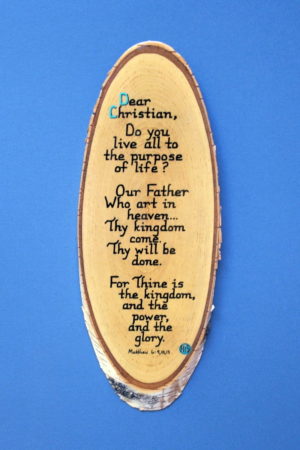 Dear
Christian,
Do you
live all to
the purpose
of life?
Our Father
Who art in
heaven...
Thy kingdom
come.
Thy will be
done.
For Thine is
the kingdom,
and the
power,
and the
glory.
Matthew 6:9,10,13